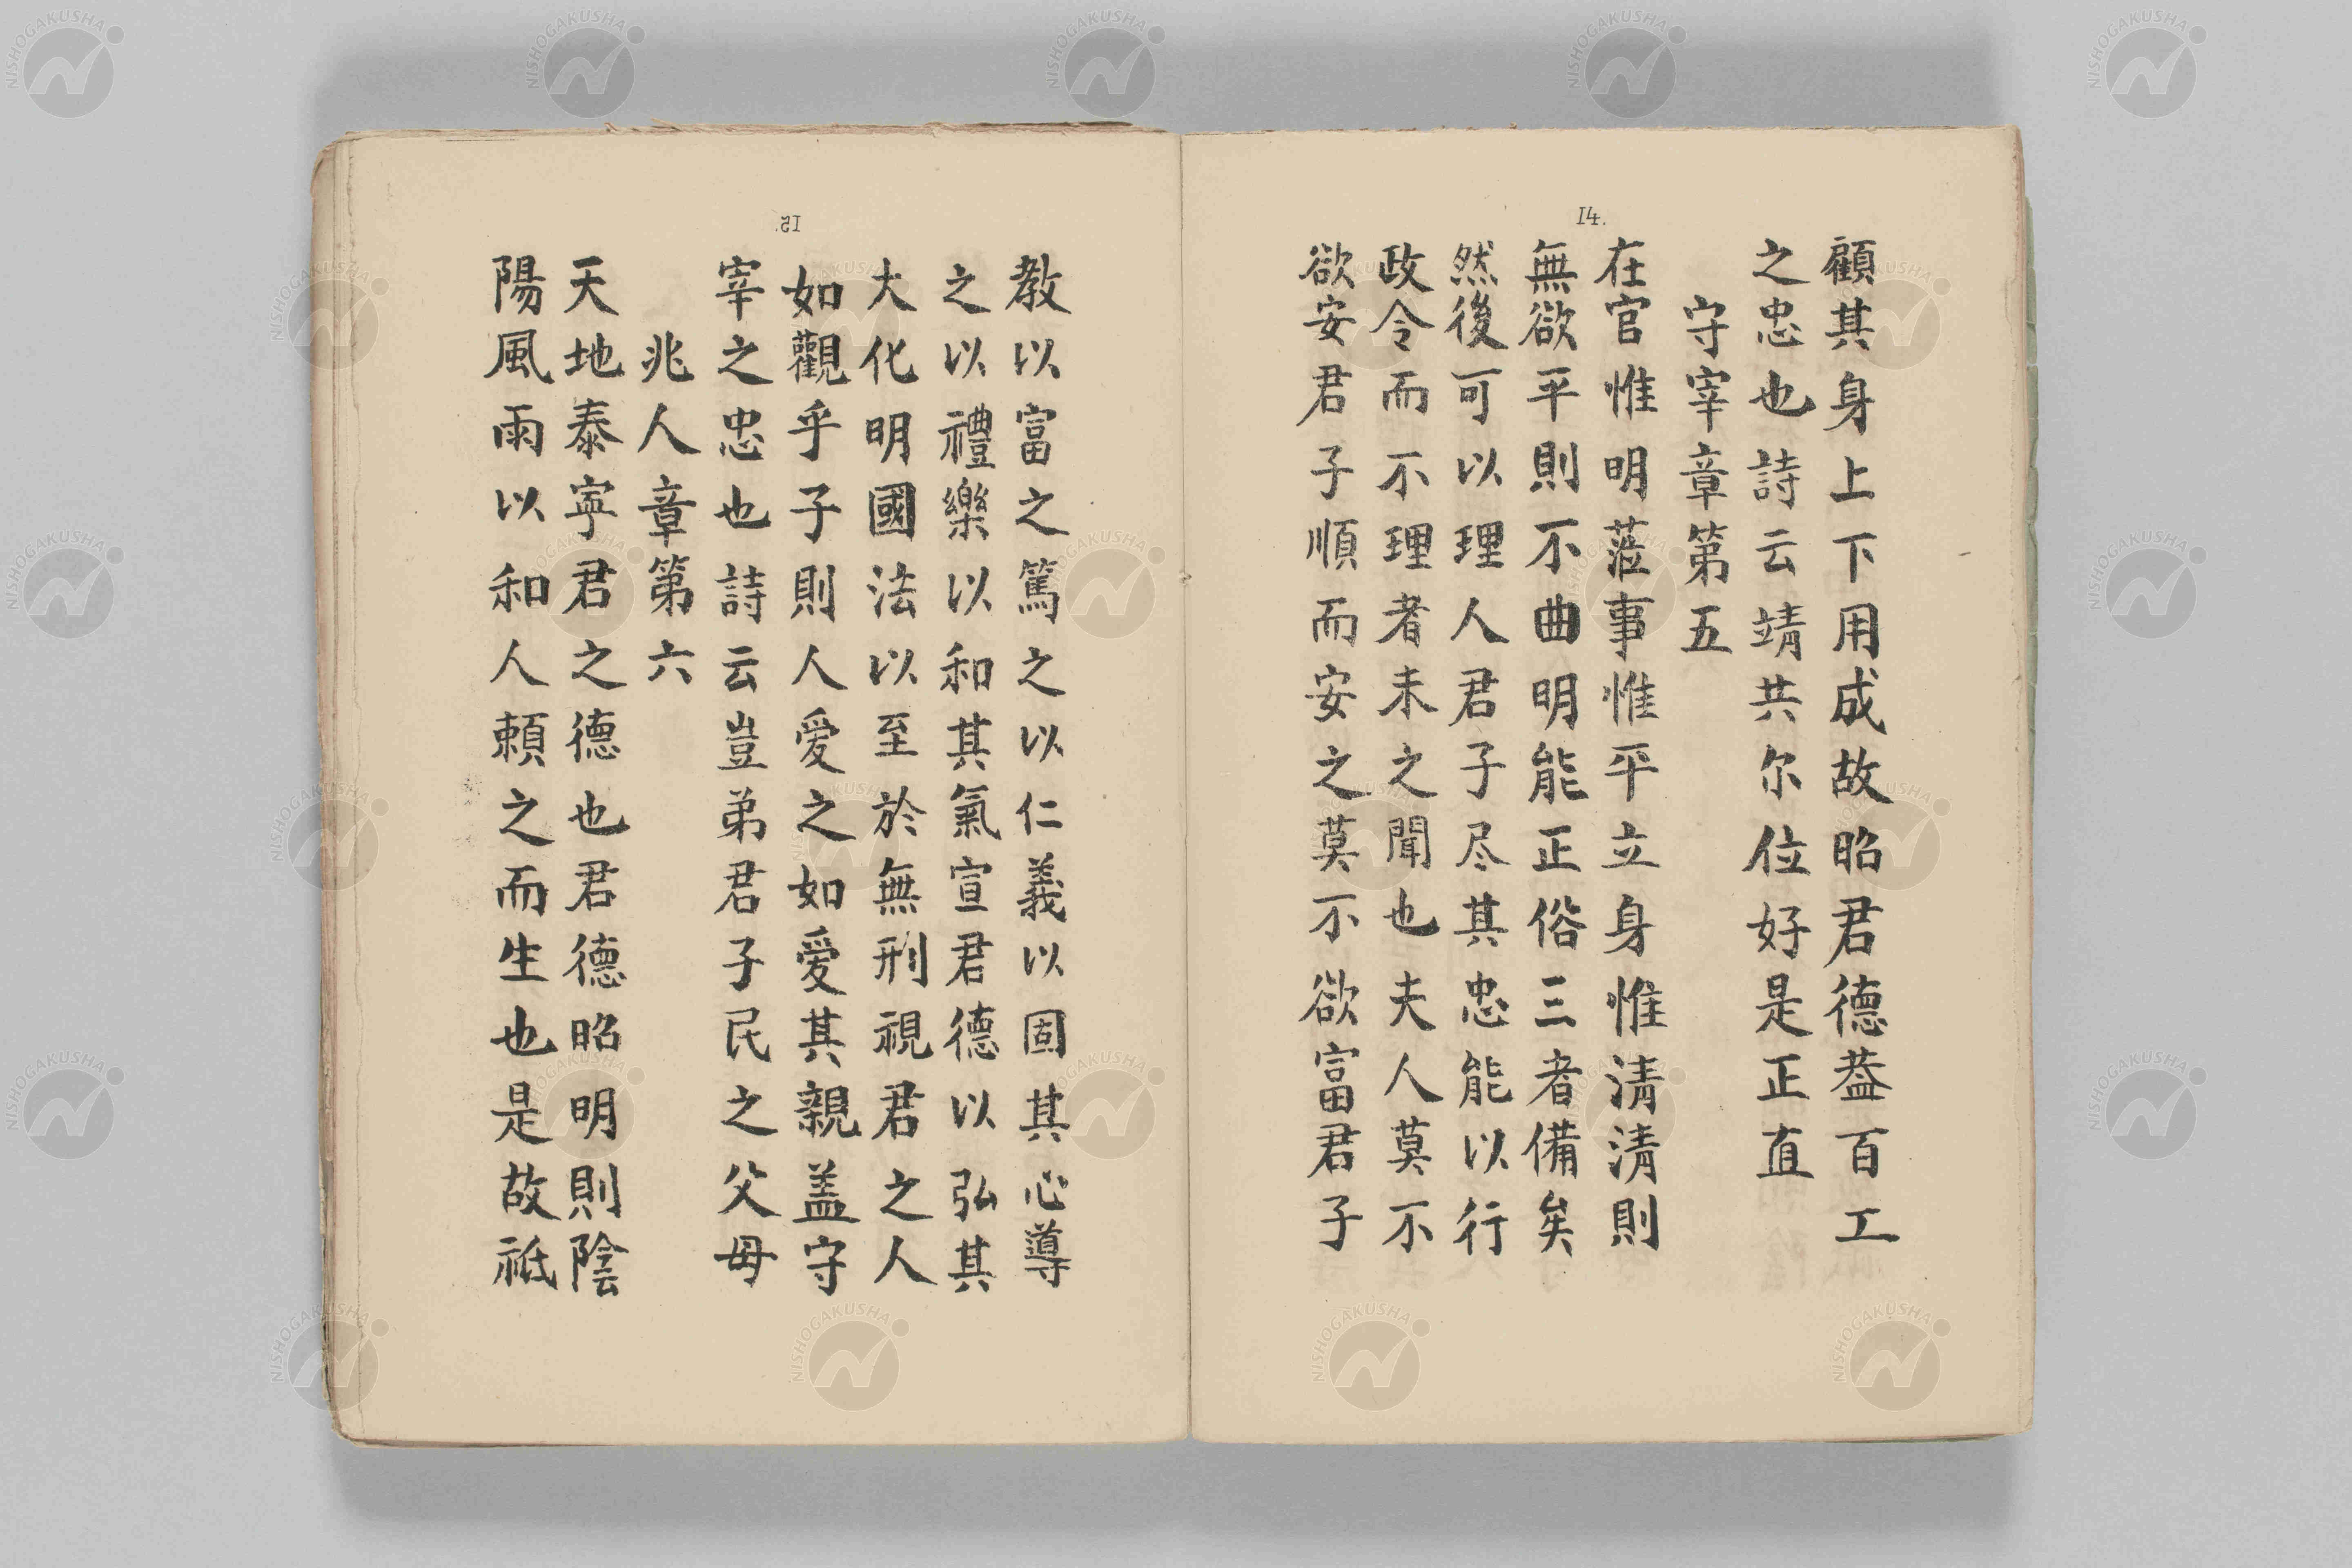 14.
顧其身上下用成故昭君德葢百工
之忠也詩云靖共尔位好是正直
守宰章第五
在官惟明蒞事惟平立身惟淸淸則
無欲平則不曲明能正俗三者備矣
然後可以理人君子尽其忠能以行
政令而不理者未之聞也夫人莫不
欲安君子順而安之莫不欲富君子
15.
教以富之篤之以仁義以固其心導
之以禮樂以和其氣宣君德以弘其
大化明國法以至於無刑視君之人
如觀乎子則人愛之如愛其親盖守
宰之忠也詩云豈弟君子民之父母
兆人章第六
天地泰寧君之德也君德昭明則陰
陽風雨以和人頼之而生也是故祗
NISHOGAKUSHA